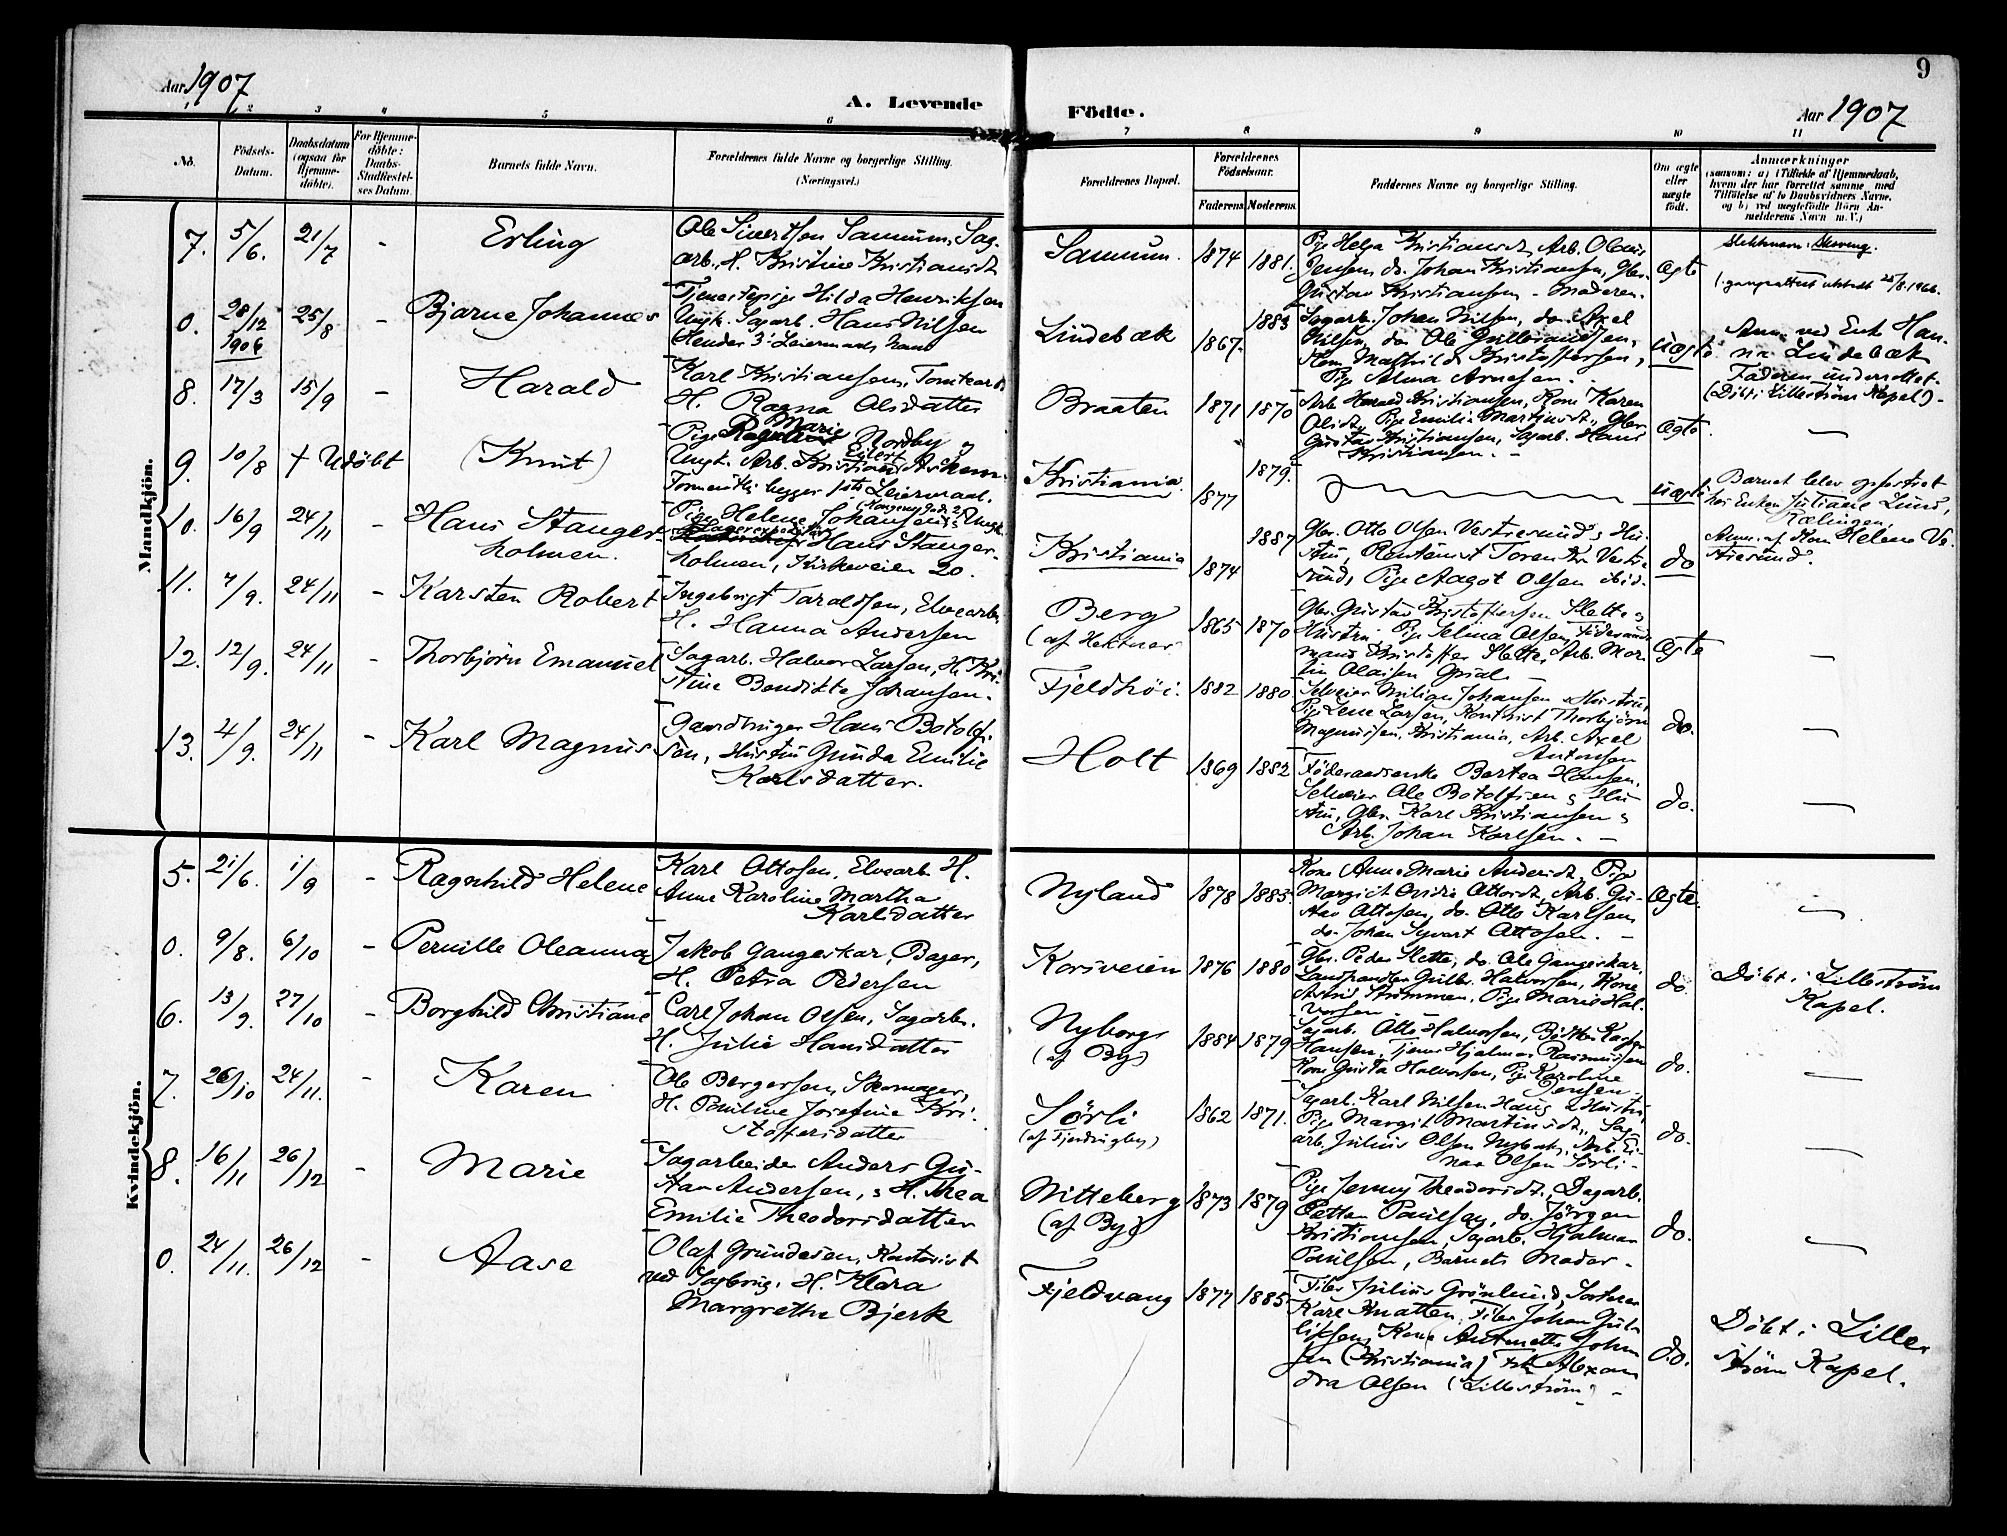 Aar 1907
A. Levende
Födte.
Aar 1907
9
1 2 3 4 5 6 7 8 9 10 11
No.
Födsels-Datum.
Daabsdatum (ogsaa for Hjemmedöbte).
For Hjemmedöbte: Daabs-Stadfæstelses Datum.
Barnets fulde Navn.
Forældrenes fulde Navne og borgerlige Stilling. (Næringsvei.)
Forældrenes Bopæl.
Forældrenes Födselsaar.
Faderens Moderens
Faddernes Navne og borgerlige Stilling.
Om ægte eller uægte födt.
Anmærkninger
(saasom: a) i Tilfælde af Hjemmedaab,
hvem der har forrettet samme med
Tilföielse af to Daabsvidners Navne,
og b) ved uægtefödte Börn Anmelderens Navn m. V.)
Mandkjön.
7. 5/6. 21/7 - Erling
Ole Sivertsen Samuum, Sag-
arb., H. Kristine Kristiansdt.
Samuum. 1874 1881.
Pige Helga Kristiansdt, Arb. Olaus
Jensen, do. Johan Kristiansen, Gbr.
Gustav Kristiansen - Moderen.
ægte
Slektsnavn: Skoveng.
0. 28/12 1906 25/8 - Bjarne Johannes
Tjenestepige Hilda Henriksen
Ungk. Sagarb. Hans Nilsen
(Hendes 3. Leiermaals barn
Lindebæk 1867. 1883
Sagarb. Johan Nilsen, do Axel
Nilsen, do Ole Gulbrandsen,
Kone Mathilde Kristoffersen,
Pige Alma Arnesen. -
uægte
Anm. ved Enke Han-
na Lindebæk
Faderen underrettet.
(Döbt i Lilleström Kapel) -
8. 17/3 15/9 - Harald
Karl Kristiansen, Tomtearb.
H. Ragna Olsdatter
Braaten 1871 1870
Arb. Harald Kristiansen, Kone Karen
Olsdt, Pige Emilie Martinsdt., Gbr.
Gustav Kristiansen, Sagarb. Hans
Kristiansen. -
ægte.
9. 10/8 † Udöbt (Knut)
Pige Marie Nordby og
Ungk. Arb. Kristian Eilert
begges 1ste Leiermaal.
Kristiania. 1877 1879.
uægte
Barnet blev opfostret
hos Enken Juliane Lund,
Rælingen.
10. 16/9 24/11 - Hans Stanger-
holmen.
Pige Helene Johansen og Ungk.
Hans Stanger-
holmen, Kirkeveien 20.
Kristiania 1874 1887
Gbr. Otto Olsen Vestresund, Hu-
stru,
Pige Aagot Olsen ibid.
do
Anm. af Kone Helene Ve-
stresund.
11. 7/9. 24/11 - Karsten Robert
Ingebrigt Taraldsen, Elvearb.
H. Hanna Andersen
Berg
(af Hektner 1865 1870
Gbr. Gustav Kristoffersen Slette og
Hustru. Pige Selma Olsen, Föderaads-
mand Kristoffer Slette, Arb. Mar-
tin Olaisen
ægte
12. 12/9. 24/11 - Thorbjörn Emanuel
Sagarb. Halvor Larsen, H. Kri-
stine Bendikte Johansen.
Fjeldhöi. 1882 1880.
Schweier Milian Johansen Hustru,
Pige Lene Larsen, Kontorist Thorbjörn
Magnussen, Kristiania, Arb. Axel
Antonsen
do.
13. 4/9. 24/11 - Karl Magnus
Gaardbruger Hans Botolf-
sen, Hustru Gunda Emilie
Karlsdatter.
Holt 1869 1882
Föderaadsenke Bertea Hansen,
Schweier Ole Botolfsen & Hu-
stru, Gbr. Karl Kristiansen &
Arb. Johan Karlsen. -
do.
Kvindekjön.
5. 21/6. 1/9 - Ragnhild Helene
Karl Ottosen, Elvearb. H.
Anne Karoline Martha
Karlsdatter
Nyland 1878 1883.
Kone Anne Marie Andersdt, Pige
Margit Ovidia Ottosdt, Arb. Gu-
stav Ottosen, do. Otto Karlsen,
do. Johan Syvart Ottosen. -
ægte.
0. 9/8. 6/10 - Pernille Oleanna
Jakob Gangeskar, Bager,
H. Petra Pedersen
Korsveien 1876 1880
Gbr. Peder Slette, do. Ole Gangeskar,
Landhandler Gulbr. Halvorsen, Kone
Astrid Strömmen, Pige Marie Hal-
vorsen.
do.
Döbt i Lilleström
Kapel.
6. 13/9. 27/10 - Borghild Christiane
Carl Johan Olsen, Sagarb.
H. Julie Hansdatter
Nyborg
(af By) 1884 1879
Sagarb. Otto Halvorsen, Kasper
Hansen, Tjener Hjalmar Rasmussen
Kone Gusta Halvorsen, Pige Karoline
Jensen.
do.
7. 26/10 24/11. - Karen
Ole Bergersen, Skomager,
H. Pauline Josefine Kri-
stoffersdatter
Sörli
(af Fjerdingby) 1862 1871.
Sagarb. Karl Nilsen Haug & Hustru,
Pige Margit Martinsdt., Sag-
arb. Julius Olsen Nybak, Arb. Ei-
nar Olsen Sörli -
do.
8. 16/11 26/12 - Marie
Sagarbeider Anders Gu-
stav Andersen, & H. Thea
Emilie Theodorsdatter
Witteberg
(af By) 1873 1879
Pige Jenny Theodorsdt., Dagarb.
Petter Paulsen, do. Jörgen
Kristiansen, Sagarb. Hjalmar
Paulsen, Barnets Moder. -
do.
0. 24/11. 26/12 - Aase
Olaf Grundesen, Kontorist
ved Sagbrug. H. Klara
Margrethe Bjerk
Fjeldvang 1877 1885
Julius Grönlund, Sorterer
Karl Knatten, Johan Gul-
liksen, Kone Antonette John-
sen (Kristiania) Frk Alexan-
dra Olsen (Lilleström) -
do.
Döbt i Lille-
ström Kapel.